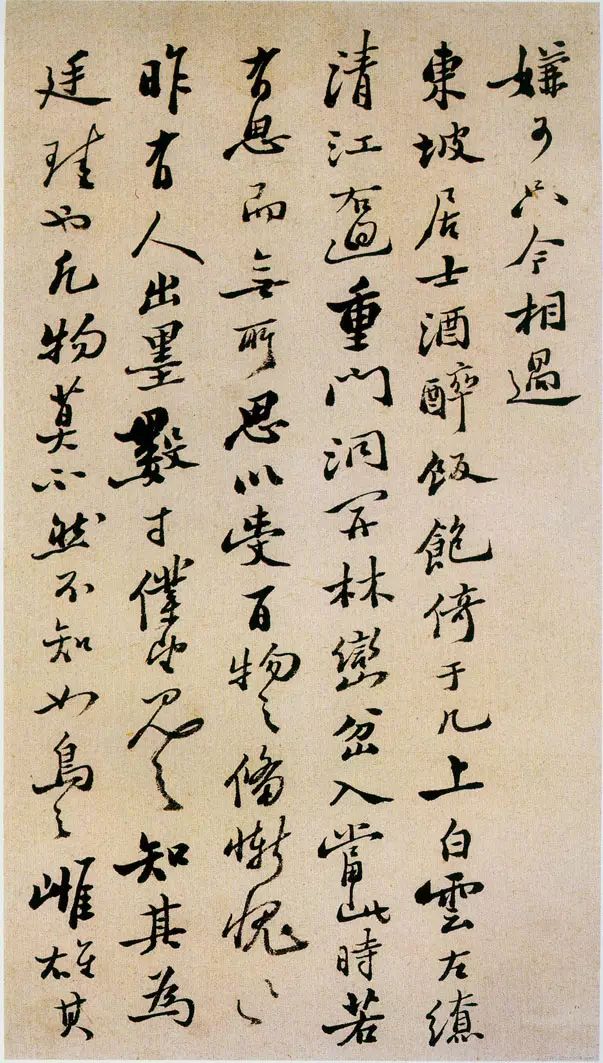 嫌可只今相過
東坡居士酒醉飯飽倚于几上白雲左繚
清江右迴重門洞開林巒岔入當此時若
有思而無所思以受百物之備慚愧〻
昨有人出墨數寸僕望見之知其為
廷珪也凡物莫不然不知如鳥之雌雄其